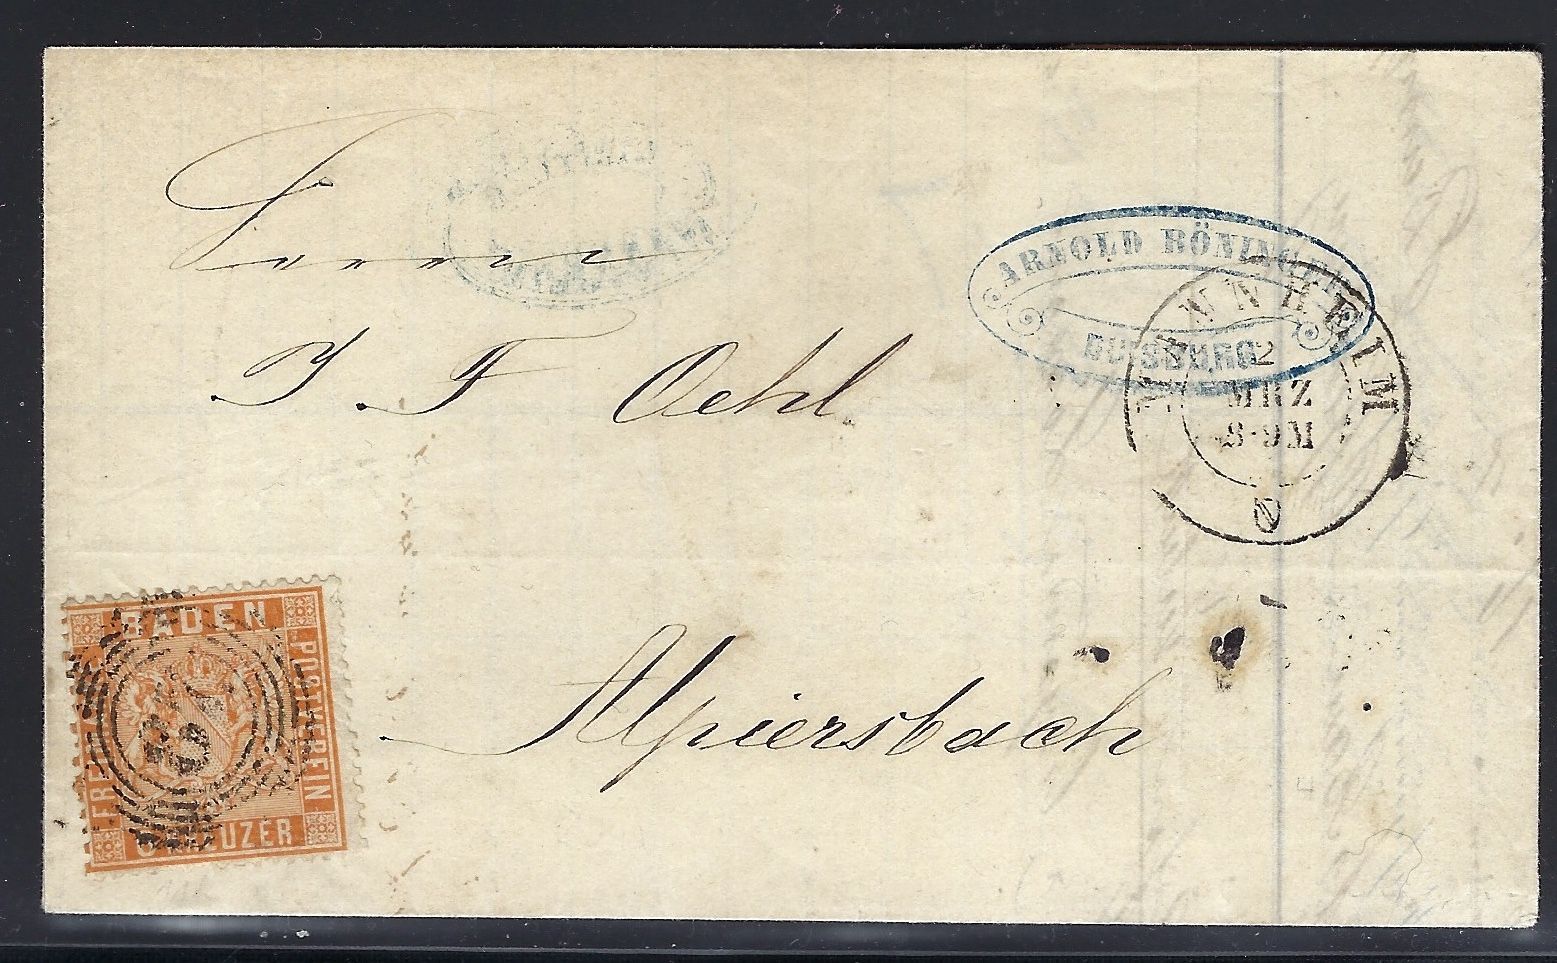 Herrn
J. F. Oehl
Alpiersbach
ARNOLD BÖNINGER
DUISBURG
MANNHEIM
2
MRZ
8-9M
BADEN
POSTVEREIN
FREI
6 KREUZER
87